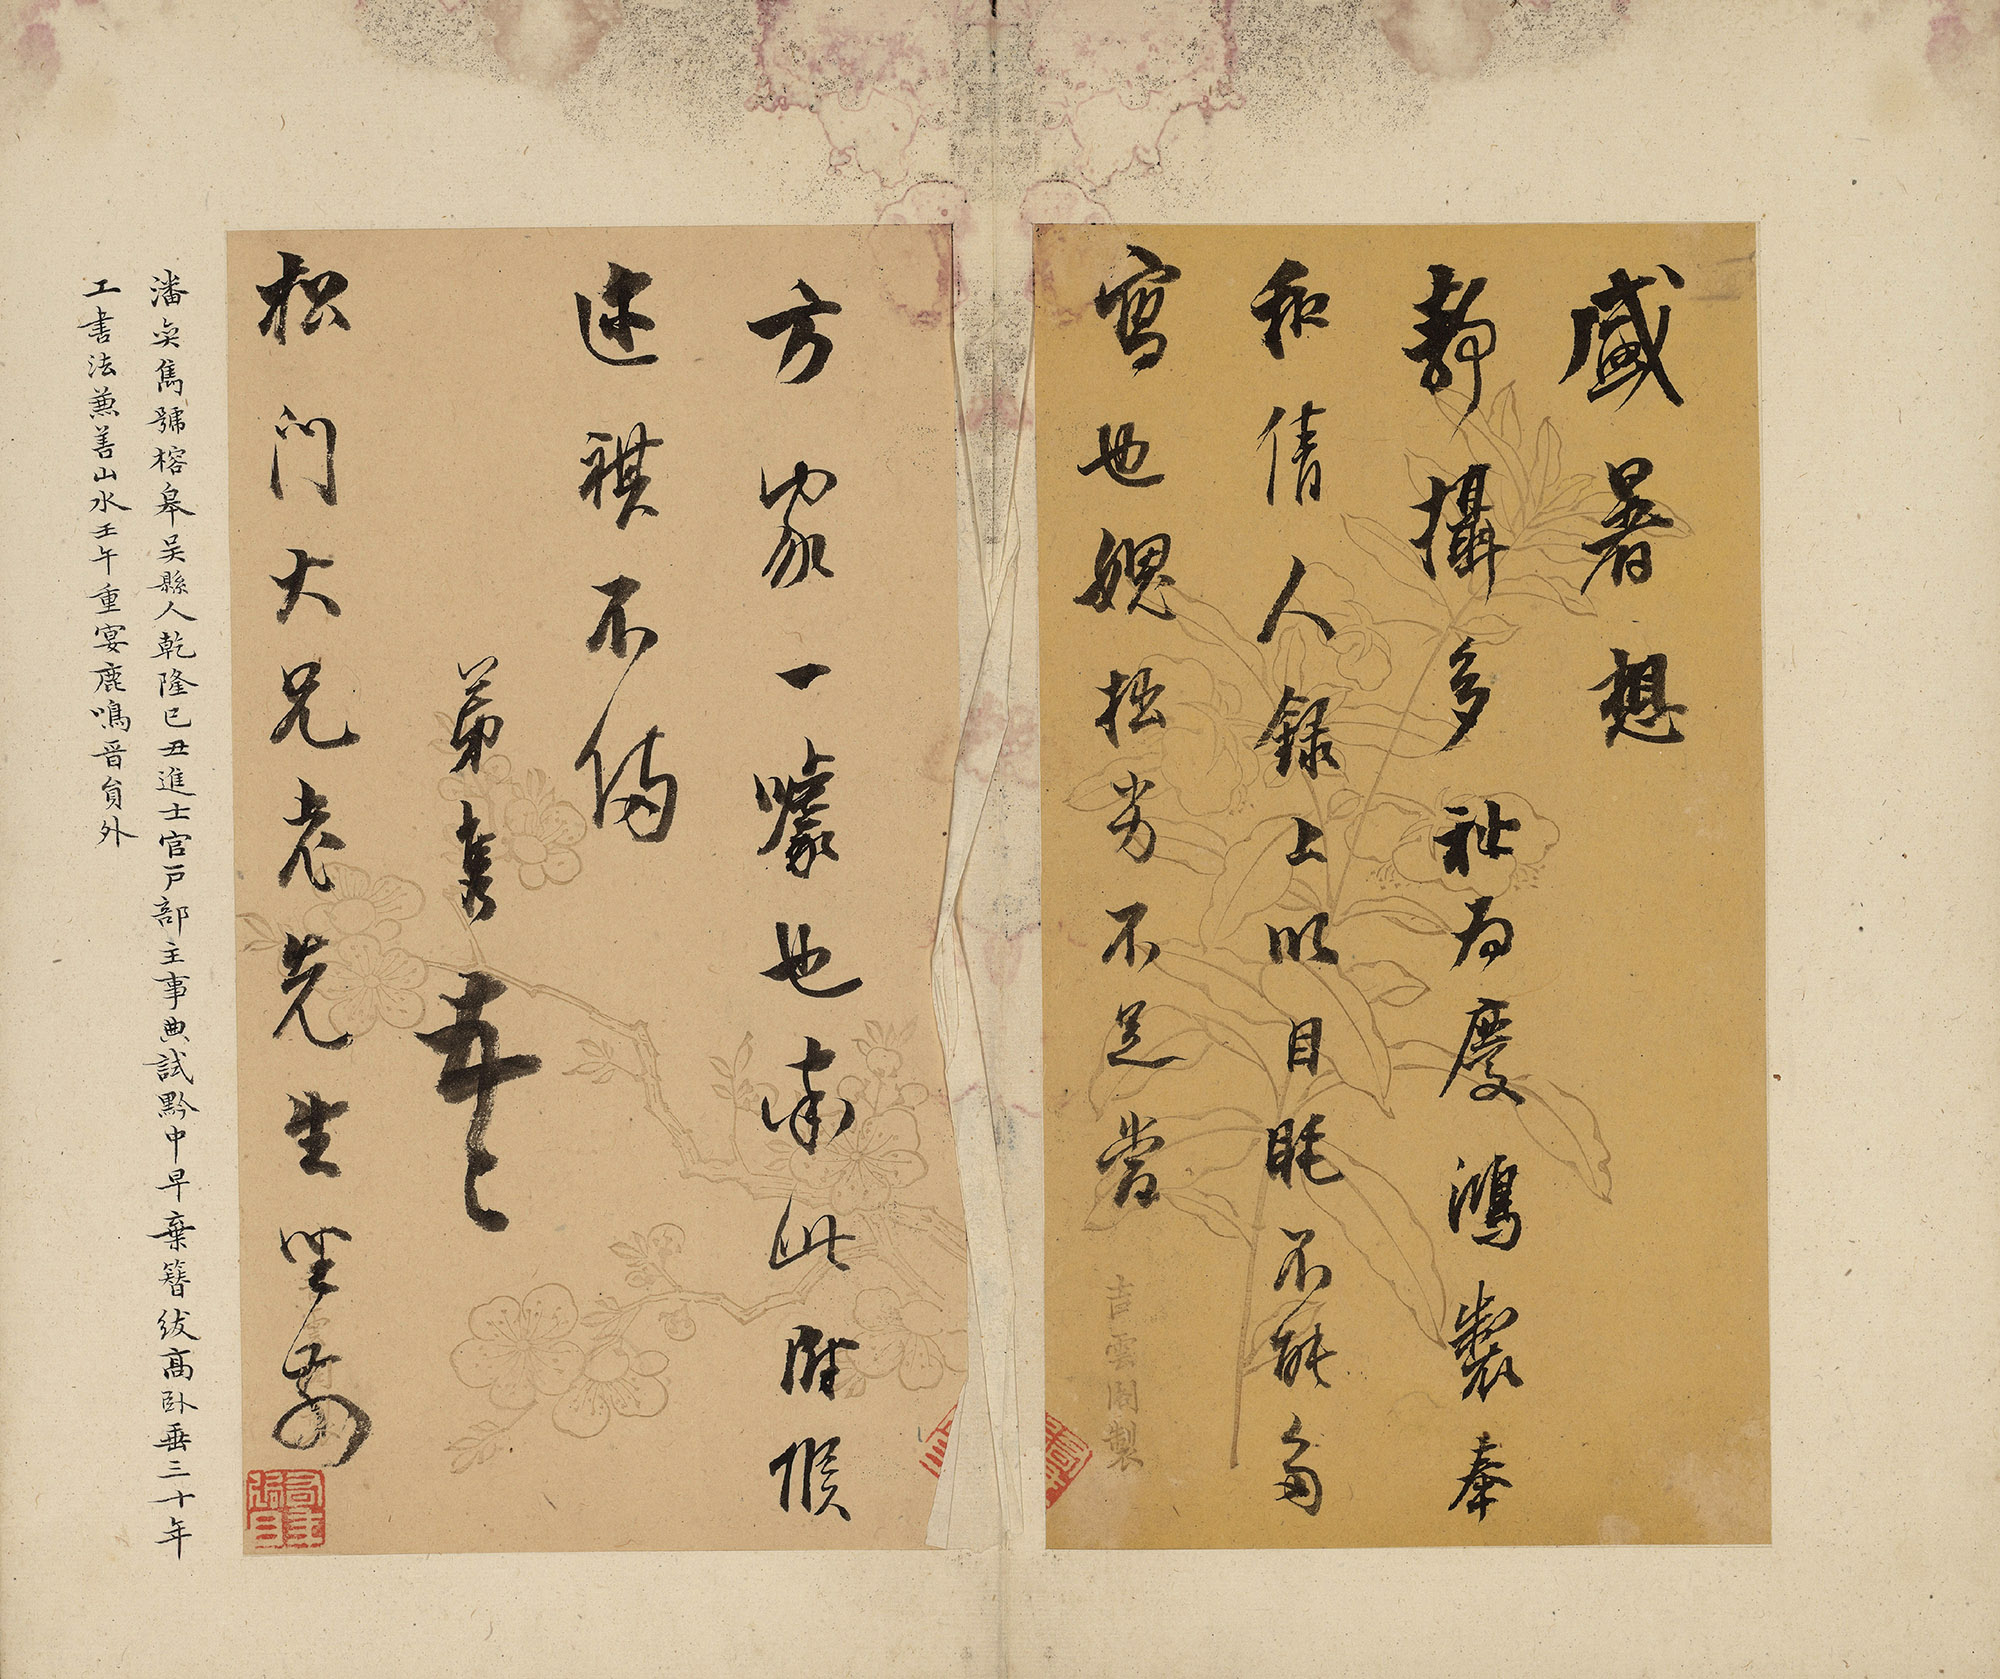 盛暑想
静攝多祉為慶鴻製奉
和倩人録上以目眊不能多
寫也媿拙劣不足當
吉雲閣製
方家一噱也肅此附候
近祺不備
弟奕雋
松门大兄老先生
潘奕雋號榕皋吴縣人乾隆己丑進士官戶部主事典試黔中早棄簪紱髙卧垂三十年
工書法兼善山水壬午重宴鹿鳴晋員外